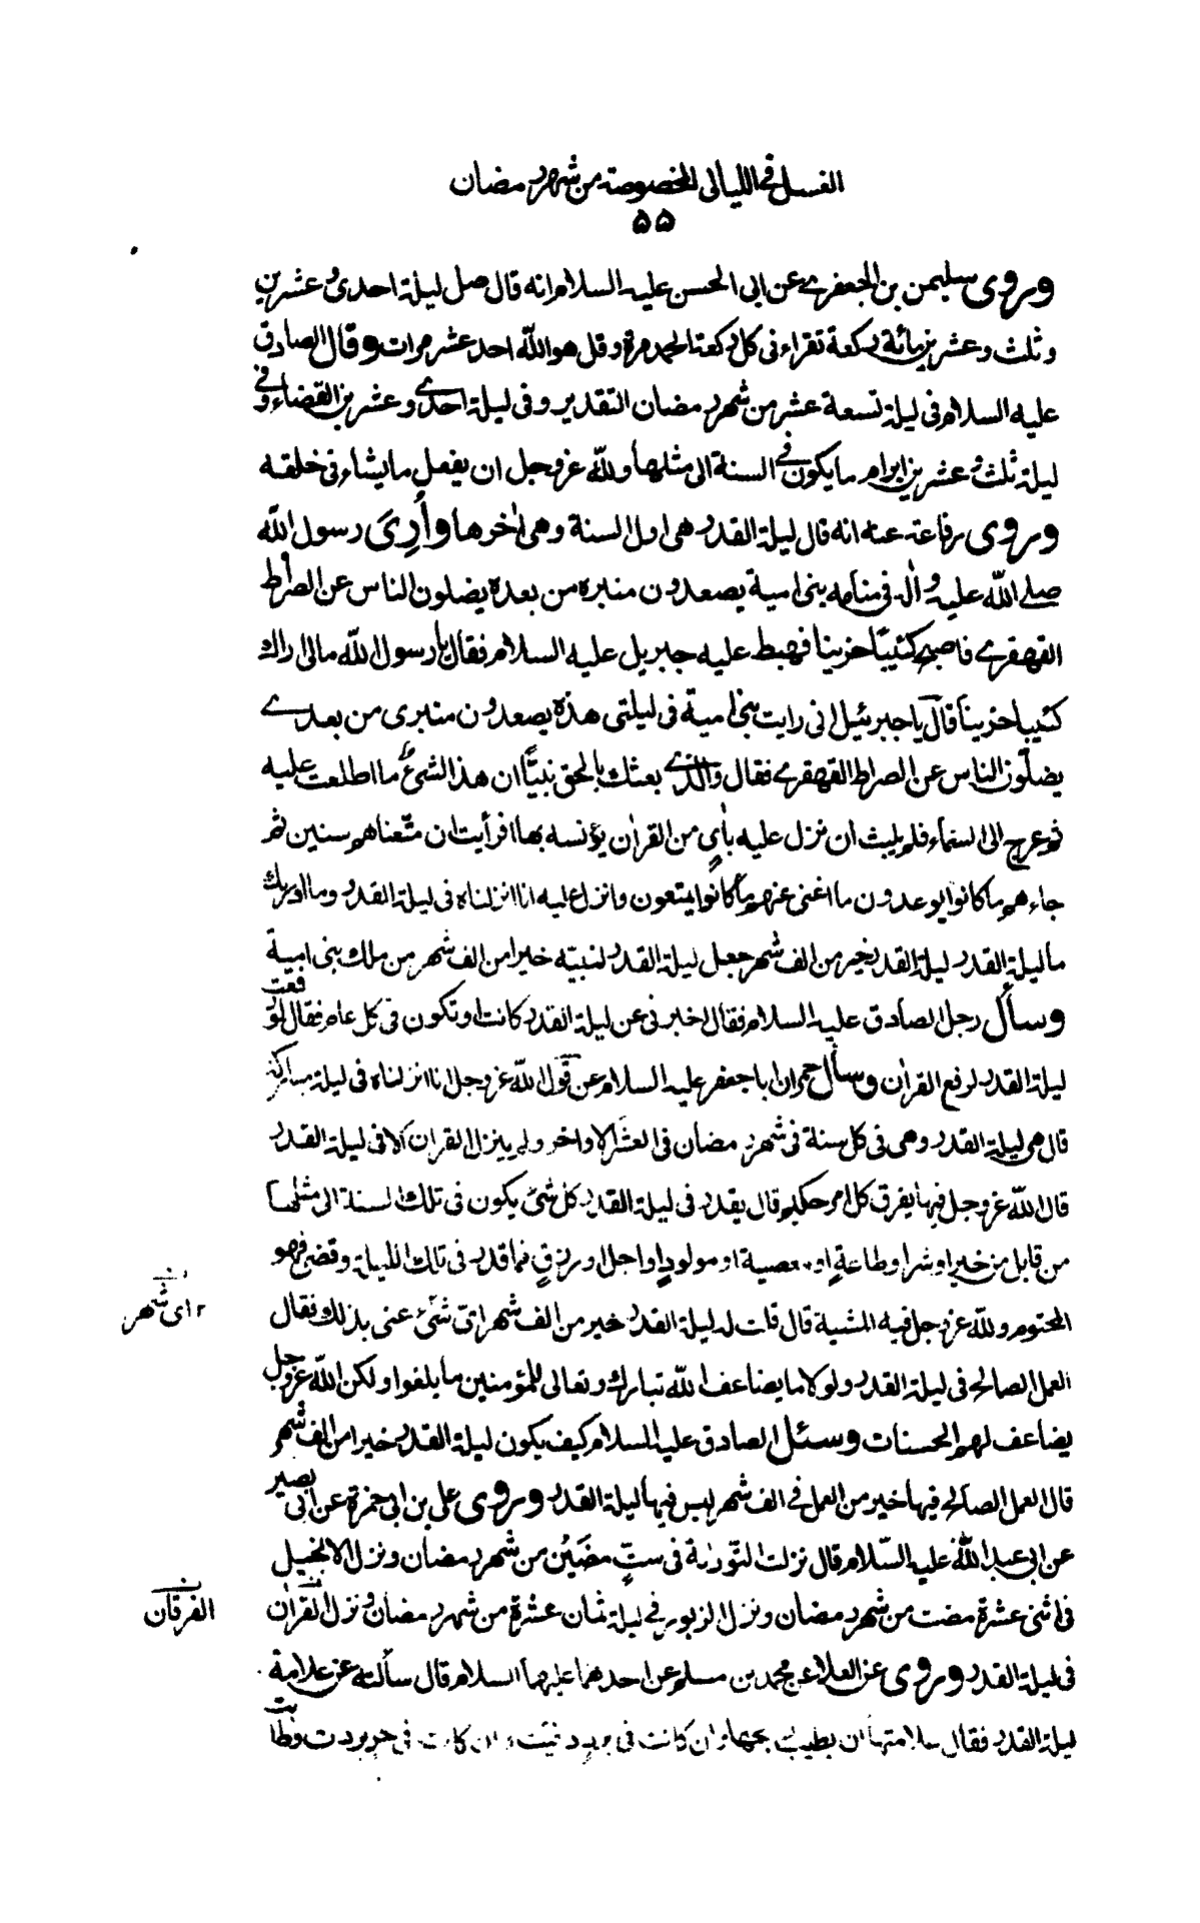 الغسل في الليالي المخصوصة من شهر رمضان
۵۵
وروى سليمن بن الجعفرى عن ابى الحسن عليه السلام انه قال صل ليلة احدى و عشرين
وثلث وعشرين مائة ركعة تقراء فى كل ركعة الحمد مرة و قل هو الله احد عشر مرات وقال الصادق
عليه السلام فى ليلة تسعة عشر من شهر رمضان التقدير وفى ليلة احدى وعشرين القضاء وفى
ليلة ثلث و عشرين ابرام ما يكون فى السنة الى مثلها ولله عز وجل ان يفعل ما يشاء فى خلقه
وروى رفاعة عنه انه قال ليلة القدر هى اول السنة وهى اخرها وأُرِىَ رسول الله
صلى الله عليه و اله فى منامه بنى امية يصعدون منبره من بعده يضلون الناس عن الصراط
القهقرى فاصبح كئيبًا حزينا فهبط عليه جبريل عليه السلام فقال يا رسول الله مالى اراك
كئيبا حزينا قال يا جبرئيل انى رايت بنى امية فى ليلتى هذه يصعدون منبرى من بعدى
يضلّون الناس عن الصراط القهقرى فقال والذى بعثك بالحق نبيًّا ان هذا الشئ ما اطلعت عليه
ثم عرج الى السماء فلم يلبث ان نزل عليه بأىٍ من القران يؤنسه بها افرأيت ان متّعناهم سنين ثم
جاءهم ما كانوا يوعدون ما اغنى عنهم ما كانوا يمتعون وانزل عليه انا انزلناه فى ليلة القدر وما ادريك
ما ليلة القدر ليلة القدر خير من الف شهر جعل ليلة القدر لنبيّه خيرا من الف شهر من ملك بنى امية
وسأل رجل الصادق عليه السلام فقال اخبرنى عن ليلة القدر كانت او تكون فى كل عام فقال لو رفعت
ليلة القدر لرفع القران وسأل حمران ابا جعفر عليه السلام عن قول الله عز وجل انا انزلناه فى ليلة مباركة
قال هى ليلة القدر وهى فى كل سنة فى شهر رمضان فى العشر الاواخر ولم ينزل القران الا فى ليلة القدر
قال الله عز وجل فيها يفرق كل امر حكيم قال يقدر فى ليلة القدر كل شئ يكون فى تلك السنة الى مثلها
من قابل من خير او شر او طاعةٍ او معصية او مولودٍ او اجل او رزقٍ فما قدر فى تلك الليلة وقضى فهو
المحتوم ولله عز وجل فيه المشية قال قلت له ليلة القدر خير من الف شهر اىّ شئ عنى بذلك فقال
ای شهر
العمل الصالح فى ليلة القدر ولولا ما يضاعف الله تبارك وتعالى للمؤمنين ما بلغوا ولكن الله عز وجل
يضاعف لهم الحسنات وسئل الصادق عليه السلام كيف يكون ليلة القدر خيرا من الف شهر
قال العمل الصالح فيها خير من العمل فى الف شهر ليس فيها ليلة القدر وروى على بن ابى حمزة عن ابى بصير
عن ابى عبد الله عليه السّلام قال نزلت التّورية فى ستٍّ مضَيْن من شهر رمضان ونزل الانجيل
فى اثنى عشرة مضت من شهر رمضان ونزل الزبور فى ليلة ثمان عشرة من شهر رمضان و نزل القران
الفرقان
فى ليلة القدر وروى عن العلاء عن محمد بن مسلم عن احدهما عليهما السلام قال سألته عن علامة
ليلة القدر فقال علامتها ان يطيب ريحها وان كانت فى برد دفئت وان كانت فى حر بردت وطابت